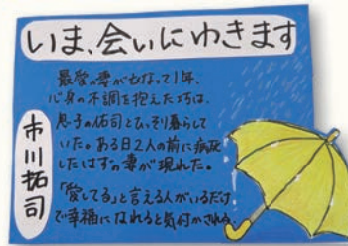 いま、会いにゆきます
市川拓司
最愛の妻が亡なって1年、
心身の不調を抱えた巧は、
息子の佑司とひっそり暮らして
いた。ある日2人の前に病死
したはずの妻が現れた。
「愛してる」と言える人がいるだけ
で幸福になれると気付かされる。